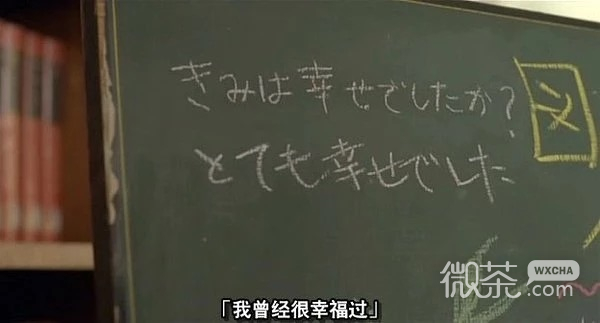 きみは幸せでしたか?
とても幸せでした
「我曾经很幸福过」
微茶
WXCHA
.com